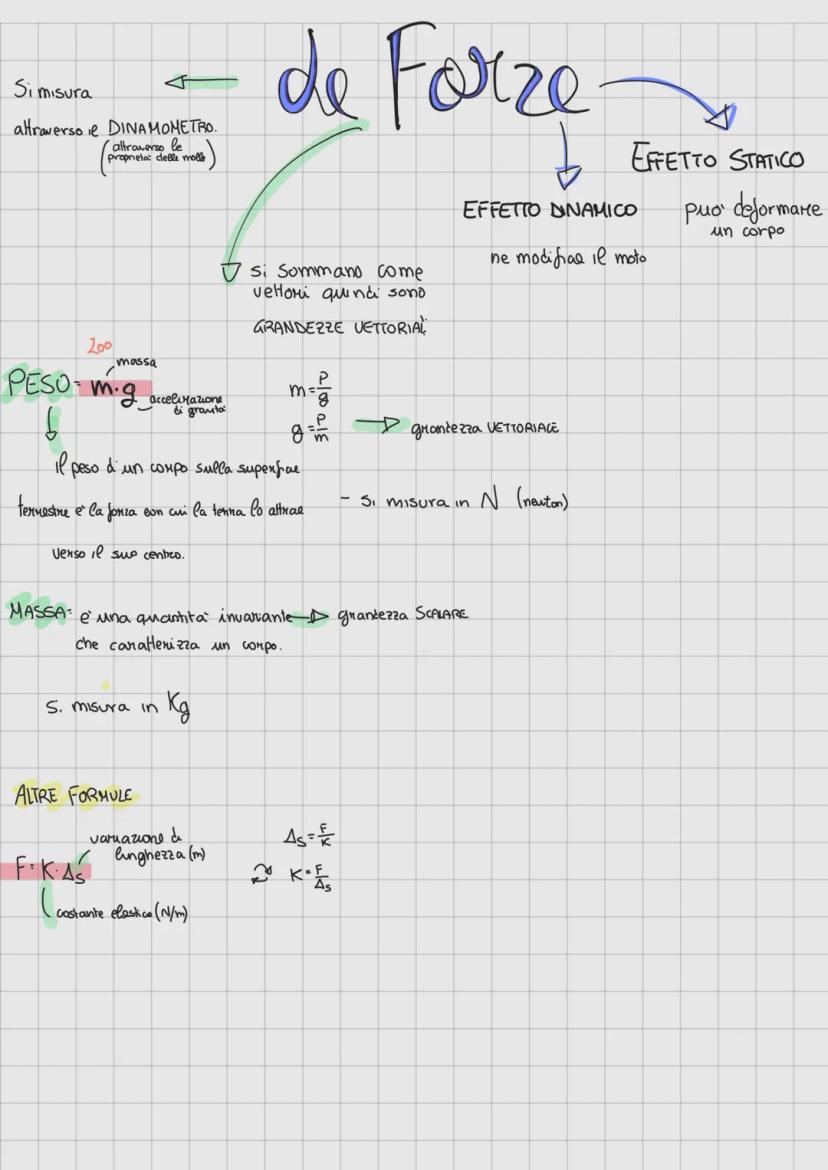 Le Forze
Si misura
attraverso il DINAMOMETRO.
(attraverso le
proprietà delle molle)
EFFETTO STATICO
può deformare
un corpo
EFFETTO DINAMICO
ne modifica il moto
si sommano come
vettori quindi sono
GRANDEZZE VETTORIALI
200
massa
PESO = m·g
accelerazione
di gravità
m = P/g
g = P/m
grandezza VETTORIALE
Il peso di un corpo sulla superficie
terrestre è la forza con cui la terra lo attrae
verso il suo centro.
- Si misura in N (newton)
MASSA: è una quantità invariante
che caratterizza un corpo.
grandezza SCALARE
Si misura in Kg
ALTRE FORMULE
variazione di
lunghezza (m)
F = K·Δs
costante elastica (N/m)
Δs = F/K
K = F/Δs